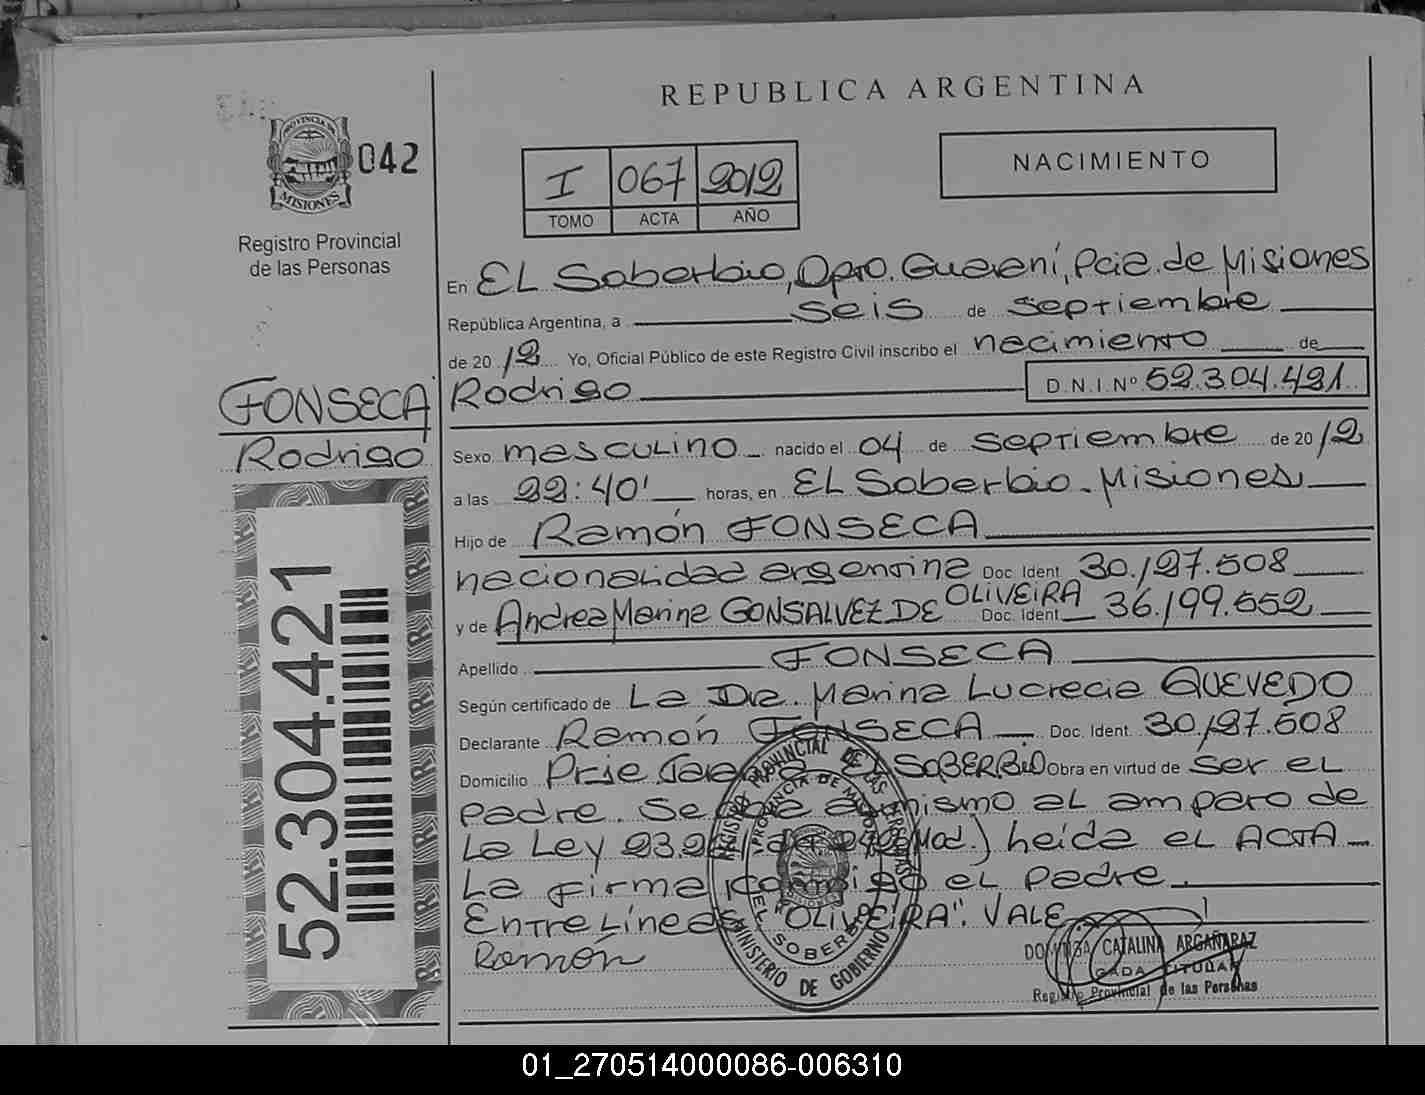 REPUBLICA ARGENTINA
PROVINCIA DE
MISIONES
042
Registro Provincial
de las Personas
I 067 2012
TOMO ACTA AÑO
NACIMIENTO
En EL Soberbio, Dpto. Guaraní, Pcia. de Misiones
República Argentina, a seis de septiembre
de 2012 Yo, Oficial Público de este Registro Civil inscribo el nacimiento de
Rodrigo D.N.I. Nº 52.304.421
FONSECA
Rodrigo
Sexo masculino nacido el 04 de septiembre de 2012
a las 22:40' horas, en EL Soberbio. Misiones
Hijo de Ramón FONSECA
nacionalidad argentina Doc. Ident. 30.127.508
y de Andrea Marine GONSALVEZ DE OLIVEIRA Doc. Ident. 36.199.552
Apellido FONSECA
Según certificado de La Dra. Marina Lucrecia QUEVEDO
Declarante Ramón FONSECA Doc. Ident. 30.127.508
Domicilio EL SOBERBIO Obra en virtud de ser el
padre. mismo al amparo de
La Ley Mod.) leída el ACTA
La firma conmigo el padre.
Entre Líneas "OLIVEIRA". VALE.
Ramón
52.304.421
REGISTRO PROVINCIAL DE LAS PERSONAS
PROVINCIA DE MISIONES
EL SOBERBIO
MINISTERIO DE GOBIERNO
CATALINA ARGAÑARAZ
TITULAR
Registro Provincial de las Personas
01_270514000086-006310